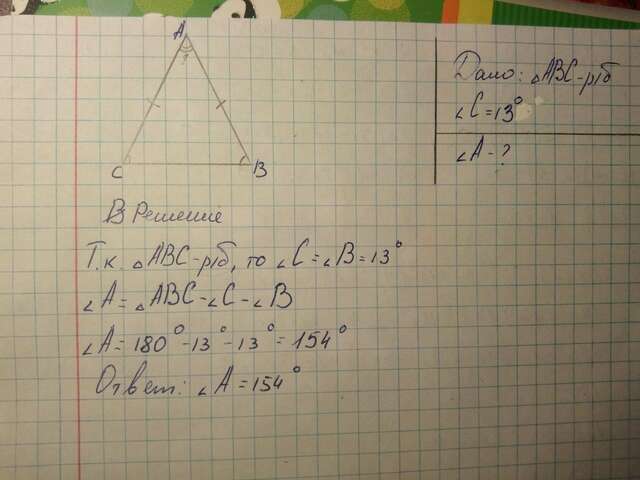 A
C
B
Дано: △ABC-р/б
∠C=13°
∠A-?
Решение
Т.к. △ABC-р/б, то ∠C=∠B=13°
∠A=△ABC-∠C-∠B
∠A=180°-13°-13°=154°
Ответ: ∠A=154°